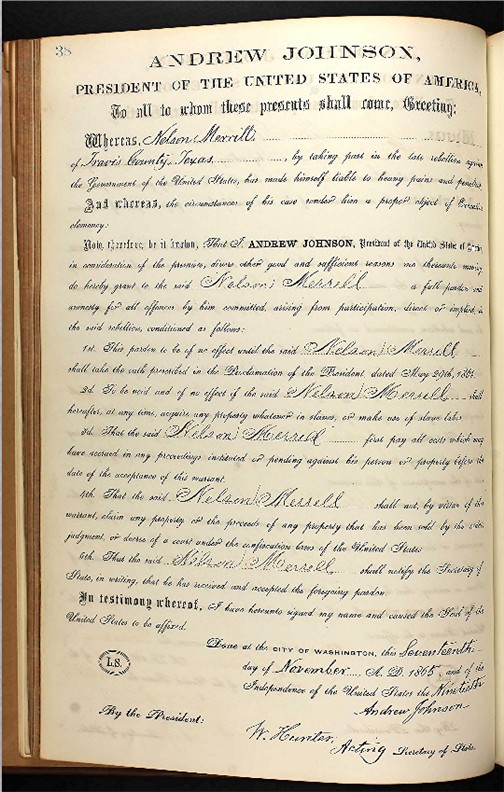 38
ANDREW JOHNSON,
PRESIDENT OF THE UNITED STATES OF AMERICA,
To all to whom these presents shall come, Greeting:
Whereas, Nelson Merrill
of Travis County, Texas, by taking part in the late rebellion against
the Government of the United States, has made himself liable to heavy pains and penalties
And whereas, the circumstances of his case render him a proper object of Executive
clemency:
Now, therefore, be it known, That I, ANDREW JOHNSON, President of the United States of America,
in consideration of the premises, divers other good and sufficient reasons me thereunto moving,
do hereby grant to the said Nelson Merrell a full pardon and
amnesty for all offences by him committed, arising from participation, direct or implied, in
the said rebellion, conditioned as follows:
1st. This pardon to be of no effect until the said Nelson Merrell
shall take the oath prescribed in the Proclamation of the President, dated May 29th, 1865.
2d. To be void and of no effect if the said Nelson Merrell shall
hereafter, at any time, acquire any property whatever in slaves, or make use of slave labor.
3d. That the said Nelson Merrell first pay all costs which may
have accrued in any proceedings instituted or pending against his person or property before the
date of the acceptance of this warrant.
4th. That the said Nelson Merrell shall not, by virtue of this
warrant, claim any property or the proceeds of any property that has been sold by the order,
judgment, or decree of a court under the confiscation laws of the United States.
5th. That the said Nelson Merrell shall notify the Secretary of
State, in writing, that he has received and accepted the foregoing pardon.
In testimony whereof, I have hereunto signed my name and caused the Seal of the
United States to be affixed.
Done at the CITY OF WASHINGTON, this Seventeenth
day of November, A. D. 1865, and of the
Independence of the United States the Ninetieth
L.S.
Andrew Johnson
By the President:
W. Hunter,
Acting Secretary of State.